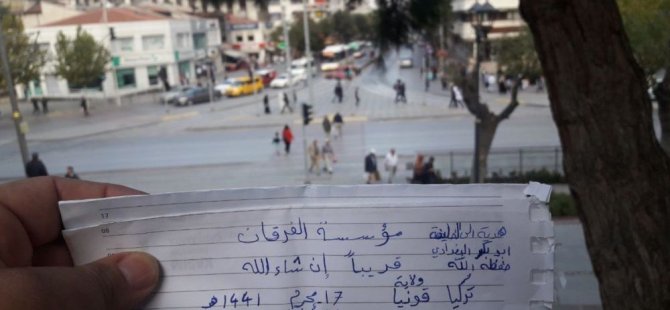 17
08
مؤسسة الفرقان
قريباً إن شاء الله
17 محرم 1441 هـ
هدية الى الخليفة
ابو بكر البغدادي
حفظه الله
ولاية
تركيا قونيا